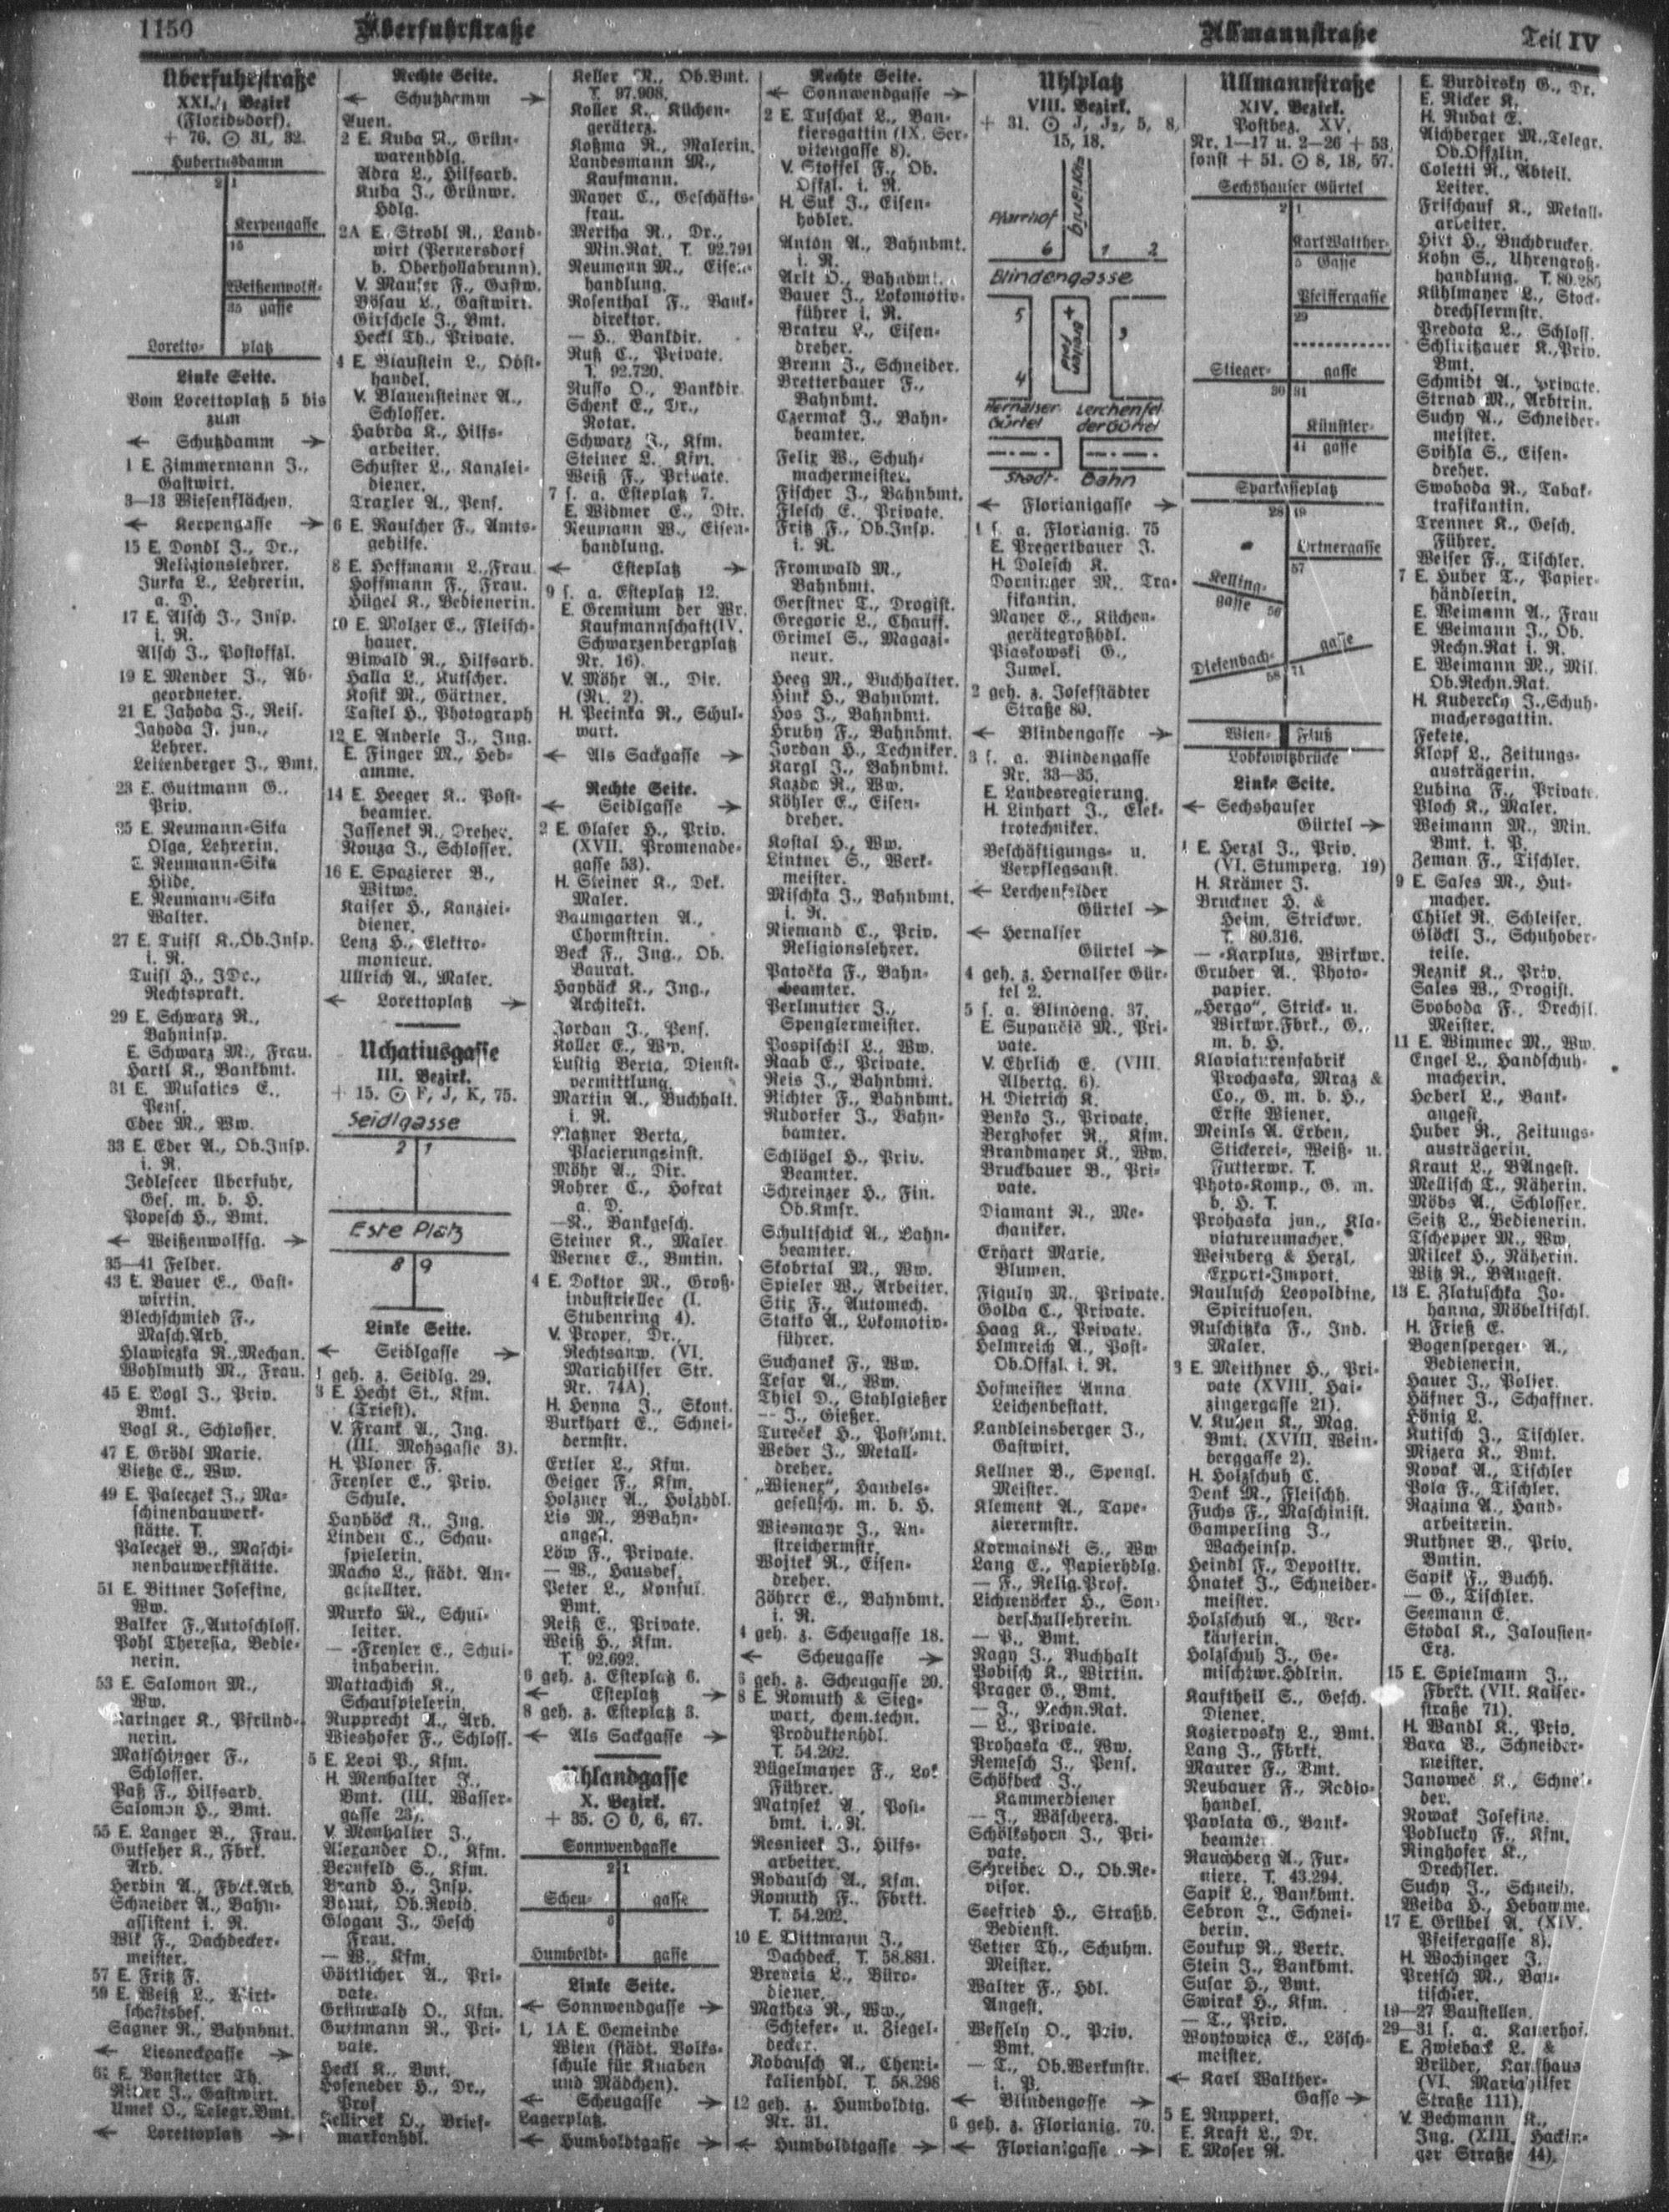 1150
Überfuhrstraße
Ullmannstraße
Teil IV
Überfuhrstraße
XXI/1 Bezirk
(Floridsdorf).
+ 76. ⊙ 31, 32.
Hubertusdamm
2 1
Kerpengasse
15
Weißenwolff-
35 gasse
Loretto- platz
Linke Seite.
Vom Lorettoplatz 5 bis
zum
← Schutzdamm →
1 E. Zimmermann J.,
Gastwirt.
3—13 Wiesenflächen.
← Kerpengasse →
15 E. Dondl J., Dr.,
Religionslehrer.
Jurka L., Lehrerin.
a. D.
17 E. Alsch J., Insp.
i. R.
Alsch J., Postoffzl.
19 E. Mender J., Ab-
geordneter.
21 E. Jahoda J., Reis.
Jahoda J. jun.,
Lehrer.
Leitenberger J., Bmt.
23 E. Guttmann G.,
Priv.
25 E. Neumann-Sika
Olga, Lehrerin.
E. Neumann-Sika
Hilde.
E. Neumann-Sika
Walter.
27 E. Tuisl K., Ob.Insp.
i. R.
Tuisl H., JDr.,
Rechtsprakt.
29 E. Schwarz R.,
Bahninsp.
E. Schwarz M., Frau.
Hartl K., Bankbmt.
31 E. Musatics E.,
Pens.
Eber M., Ww.
33 E. Eder A., Ob.Insp.
i. R.
Jedleseer Überfuhr,
Ges. m. b. H.
Popesch H., Bmt.
← Weißenwolffg. →
35—41 Felder.
43 E. Bauer E., Gast-
wirtin.
Blechschmied F.,
Masch.Arb.
Hlawiczka R., Mechan.
Wohlmuth M., Frau.
45 E. Vogl J., Priv.
Bmt.
Vogl K., Schlosser.
47 E. Grödl Marie.
Vietze E., Ww.
49 E. Paleczek J., Ma-
schinenbauwerk-
stätte. T.
Paleczek B., Maschi-
nenbauwerkstätte.
51 E. Bittner Josefine,
Ww.
Balker F., Autoschloss.
Pohl Theresia, Bedie-
nerin.
53 E. Salomon M.,
Ww.
Karinger K., Pfründ-
nerin.
Matschinger F.,
Schlosser.
Paß F., Hilfsarb.
Salomon H., Bmt.
55 E. Langer B., Frau.
Gutscher K., Fbrk.
Arb.
Herbin A., Fbrk.Arb.
Schneider A., Bahn-
assistent i. R.
Wlk F., Dachdecker-
meister.
57 E. Fritz F.
59 E. Weiß L., Wirt-
schaftsbes.
Sagner R., Bahnbmt.
← Liesneckgasse →
E. Bonstetter Th.
Ritter J., Gastwirt.
Umek O., Telegr.Bmt.
← Lorettoplatz →
Rechte Seite.
← Schutzdamm →
Auen.
2 E. Kuba R., Grün-
warenhdlg.
Adra L., Hilfsarb.
Kuba J., Grünwr.
Hdlg.
2A E. Strobl R., Land-
wirt (Pernersdorf
b. Oberhollabrunn).
V. Mauser F., Gastw.
Bösau L., Gastwirt.
Girschele J., Bmt.
Heckl Th., Private.
4 E. Blaustein L., Obst-
handel.
V. Blauensteiner A.,
Schlosser.
Habrda K., Hilfs-
arbeiter.
Schuster L., Kanzlei-
diener.
Traxler A., Pens.
6 E. Rauscher F., Amts-
gehilfe.
8 E. Hoffmann L., Frau.
Hoffmann F., Frau.
Hügel K., Bedienerin.
10 E. Molzer E., Fleisch-
hauer.
Biwald R., Hilfsarb.
Halla L., Kutscher.
Kosik M., Gärtner.
Tastel H., Photograph
12 E. Anderle J., Ing.
E. Finger M., Heb-
amme.
14 E. Heeger K., Post-
beamter.
Jassenek R., Dreher.
Rouza J., Schlosser.
16 E. Spazierer B.,
Witwe.
Kaiser H., Kanzlei-
diener.
Lenz H., Elektro-
monteur.
Ullrich A., Maler.
← Lorettoplatz →
Uchatiusgasse
III. Bezirk.
+ 15. ⊙ F, J, K, 75.
Seidlgasse
2 1
Este Platz
8 9
Linke Seite.
← Seidlgasse →
1 geh. z. Seidlg. 29.
3 E. Hecht St., Kfm.
(Triest).
V. Frank A., Ing.
(III. Mohsgasse 3).
H. Ploner F.
Freyler E., Priv.
Schule.
Hayböck K., Ing.
Linden C., Schau-
spielerin.
Macho L., städt. An-
gestellter.
Murko M., Schul-
leiter.
— -Freyler E., Schul-
inhaberin.
Mattachich K.,
Schauspielerin.
Rupprecht A., Arb.
Wieshofer F., Schloss.
5 E. Levi P., Kfm.
H. Menhalter J.,
Bmt. (III. Wasser-
gasse 23).
V. Menhalter J.,
Alexander O., Kfm.
Bernfeld S., Kfm.
Brand H., Insp.
Ob.Revid.
Glogau J., Gesch
Frau.
— W., Kfm.
Göttlicher A., Pri-
vate.
Grünwald O., Kfm.
Guttmann R., Pri-
vate.
Heckl K., Bmt.
Hoseneder H., Dr.,
Prof
O., Brief-
markenhdl.
Keller R., Ob.Bmt.
T. 97.908.
Koller K., Küchen-
gerätez.
Koßma R., Malerin.
Landesmann M.,
Kaufmann.
Mayer C., Geschäfts-
frau.
Mertha R., Dr.,
Min.Rat. T. 92.791
Neumann M., Eisen-
handlung.
Rosenthal F., Bank-
direktor.
— H., Bankdir.
Ruß C., Private.
T. 92.720.
Russo O., Bankdir.
Schenk E., Dr.,
Notar.
Schwarz J., Kfm.
Steiner L., Kfm.
Weiß F., Private.
7 s. a. Esteplatz 7.
E. Widmer E., Dir.
Neumann W., Eisen-
handlung.
← Esteplatz →
9 s. a. Esteplatz 12.
E. Gremium der Wr.
Kaufmannschaft (IV.
Schwarzenbergplatz
Nr. 16).
V. Möhr A., Dir.
(Nr. 2).
H. Pecinka R., Schul-
wart.
← Als Sackgasse →
Rechte Seite.
← Seidlgasse →
2 E. Glaser H., Priv.
(XVII. Promenade-
gasse 53).
H. Steiner K., Dek.
Maler.
Baumgarten A.,
Chormstrin.
Beck F., Ing., Ob.
Baurat.
Hayböck K., Ing.,
Architekt.
Jordan J., Pens.
Koller E., Ww.
Lustig Berta, Dienst-
vermittlung.
Martin A., Buchhalt.
i. R.
Matzner Berta,
Placierungsinst.
Möhr A., Dir.
Rohrer C., Hofrat
a. D.
— R., Bankgesch.
Steiner K., Maler
Werner E., Bmtin.
4 E. Doktor M., Groß-
industrieller (I.
Stubenring 4).
V. Proper, Dr.,
Rechtsanw. (VI.
Mariahilfer Str.
Nr. 74A).
H. Heyna J., Skont.
Burkhart E., Schnei-
dermstr.
Ertler L., Kfm.
Geiger F., Kfm.
Holzner A., Holzhdl.
Lis M., BBahn-
angest.
Löw F., Private.
— W., Hausbes.
Peter L., Konsul.
Bmt.
Reiß E., Private.
Weiß H., Kfm.
T. 92.692.
6 geh. z. Esteplatz 6.
← Esteplatz →
8 geh. z. Esteplatz 3.
← Als Sackgasse →
Uhlandgasse
X. Bezirk.
+ 35. ⊙ 6, 6, 67.
Sonnwendgasse
2 1
Scheu- gasse
6
Humboldt- gasse
Linke Seite.
← Sonnwendgasse →
1, 1A E. Gemeinde
Wien (städt. Volks-
schule für Knaben
und Mädchen).
← Scheugasse →
Lagerplatz.
← Humboldtgasse →
Rechte Seite.
← Sonnwendgasse →
2 E. Tuschak L., Ban-
kiersgattin (IX. Ser-
vitengasse 8).
V. Stoffel F., Ob.
Offzl. i. R.
H. Suk J., Eisen-
hobler.
Anton A., Bahnbmt.
i. R.
Arlt O., Bahnbmt.
Bauer J., Lokomotiv-
führer i. R.
Bratru L., Eisen-
dreher.
Brenn J., Schneider.
Bretterbauer F.,
Bahnbmt.
Czermak J., Bahn-
beamter.
Felix W., Schuh-
machermeister.
Fischer J., Bahnbmt.
Flesch E., Private.
Fritz F., Ob.Insp.
i. R.
Fromwald M.,
Bahnbmt.
Gerstner T., Drogist.
Gregoric L., Chauff.
Grimel S., Magazi-
neur.
Heeg M., Buchhalter.
Hink H., Bahnbmt.
Hos J., Bahnbmt.
Hruby F., Bahnbmt.
Jordan H., Techniker.
Kargl J., Bahnbmt.
Kazda R., Ww.
Köhler E., Eisen-
dreher.
Kostal H., Ww.
Lintner S., Werk-
meister.
Mischka J., Bahnbmt.
i. R.
Niemand C., Priv.
Religionslehrer.
Patočka F., Bahn-
beamter.
Perlmutter J.,
Spenglermeister.
Pospischil L., Ww.
Raab E., Private.
Reis J., Bahnbmt.
Richter F., Bahnbmt.
Rudorfer J., Bahn-
bamter.
Schlögel H., Priv.
Beamter.
Schreinzer H., Fin.
Ob.Kmsr.
Schultschick A., Bahn-
beamter.
Skobrtal M., Ww.
Spieler W., Arbeiter.
Stix F., Automech.
Statko A., Lokomotiv-
führer.
Suchanek F., Ww.
Tesar A., Ww.
Thiel D., Stahlgießer
— J., Gießer.
Tureček H., Postbmt.
Weber J., Metall-
dreher.
„Wiener“, Handels-
gesellsch. m. b. H.
Wiesmayr J., An-
streichermstr.
Wojtek R., Eisen-
dreher.
Zöhrer E., Bahnbmt.
i. R.
4 geh. z. Scheugasse 18.
← Scheugasse →
6 geh. z. Scheugasse 20.
8 E. Romuth & Sieg-
wart, chem.techn.
Produktenhdl.
T. 54.202.
Bügelmayer F., Lok.
Führer.
Matysek A., Post-
bmt. i. R.
Resnicek J., Hilfs-
arbeiter.
Robausch A., Kfm.
Romuth F., Fbrkt.
T. 54.202.
10 E. Dittmann J.,
Dachdeck. T. 58.831.
Breneis L., Büro-
diener.
Mathes R., Ww.,
Schiefer- u. Ziegel-
decker.
Robausch A., Chemi-
kalienhdl. T. 58.298
12 geh. z. Humboldtg.
Nr. 31.
← Humboldtgasse →
Uhlplatz
VIII. Bezirk.
+ 31. ⊙ J, J₂, 5, 8,
15, 18.
Pfarrhof
6 1 2
Blindengasse
5 3
+
Breiten
feld
4
Hernalser
Gürtel
Lerchenfel
der Gürtel
Stadt- Bahn
← Florianigasse →
1 s. a. Florianig. 75
E. Pregertbauer J.
H. Dolesch K.
Dorninger M., Tra-
fikantin.
Mayer E., Küchen-
gerätegroßhdl.
Piaskowski G.,
Juwel.
2 geh. z. Josefstädter
Straße 80.
← Blindengasse →
3 s. a. Blindengasse
Nr. 33—35.
E. Landesregierung.
H. Linhart J., Elek-
trotechniker.
Beschäftigungs- u.
Verpflegsanst.
← Lerchenfelder
Gürtel →
← Hernalser
Gürtel →
4 geh. z. Hernalser Gür-
tel 2.
5 s. a. Blindeng. 37.
E. Supančič M., Pri-
vate.
V. Ehrlich E. (VIII.
Albertg. 6).
H. Dietrich K.
Benko J., Private.
Berghofer R., Kfm.
Brandmayer K., Ww.
Bruckbauer B., Pri-
vate.
Diamant R., Me-
chaniker.
Erhart Marie,
Blumen.
Figuly M., Private.
Golda C., Private.
Haag K., Private.
Helmreich A., Post-
Ob.Offzl. i. R.
Hofmeister Anna
Leichenbestatt.
Kandleinsberger J.,
Gastwirt.
Kellner B., Spengl.
Meister.
Klement A., Tape-
zierermstr.
Kormainski S., Ww
Lang E., Papierhdlg.
— F., Relig.Prof.
Lichtenöcker H., Son-
derschullehrerin.
— P., Bmt.
Nagy J., Buchhalt
Pobisch K., Wirtin.
Prager G., Bmt.
— J., Rechn.Rat.
— L., Private.
Prohaska E., Ww.
Remesch J., Pens.
Schösbeck J.,
Kammerdiener
— J., Wäscheerz.
Schölkshorn J., Pri-
vate.
Schreiber O., Ob.Re-
visor.
Seefried H., Straßb.
Bedienst.
Vetter Th., Schuhm.
Meister.
Walter F., Hdl.
Angest.
Wessely O., Priv.
Bmt.
— T., Ob.Werkmstr.
i. P.
← Blindengasse →
6 geh. z. Florianig. 70.
← Florianigasse →
Ullmannstraße
XIV. Bezirk.
Postbez. XV.
Nr. 1—17 u. 2—26 + 53,
sonst + 51. ⊙ 8, 18, 57.
Sechshauser Gürtel
2 1
Karl Walther-
5 Gasse
Pfeiffergasse
29
Stieger- gasse
30 31
Künstler-
41 gasse
Sparkasseplatz
28 49
Ortnergasse
57
Kelling-
gasse 56
Diefenbach- gasse
58 71
Wien- Fluß
Lobkowitzbrücke
Linke Seite.
← Sechshauser
Gürtel →
1 E. Herzl J., Priv.
(VI. Stumperg. 19)
H. Krämer J.
Bruckner H. &
Heim, Strickwr.
T. 80.316.
— -Karplus, Wirkwr.
Gruber A., Photo-
papier.
„Hergo“, Strick- u.
Wirkwr.Fbrk., G.
m. b. H.
Klaviaturenfabrik
Prochaska, Mraz &
Co., G. m. b. H.,
Erste Wiener.
Meinls A. Erben,
Stickerei-, Weiß- u.
Futterwr. T.
Photo-Komp., G. m.
b. H. T.
Prohaska jun., Kla-
viaturenmacher.
Weinberg & Herzl,
Export-Import.
Raulusch Leopoldine,
Spirituosen.
Ruschitzka F., Ind.
Maler.
3 E. Meithner H., Pri-
vate (XVIII. Hai-
zingergasse 21).
V. Kuhen K., Mag.
Bmt. (XVIII. Wein-
berggasse 2).
H. Holzschuh C.
Denk M., Fleischh.
Fuchs F., Maschinist.
Gamperling J.,
Wacheinsp.
Heindl F., Depotltr.
Hnatek J., Schneider-
meister.
Holzschuh A., Ver-
käuferin.
Holzschuh J., Ge-
mischtwr.Hdlrin.
Kauftheil S., Gesch.
Diener.
Koziervosky L., Bmt.
Lang J., Fbrkt.
Maurer F., Bmt.
Neubauer F., Radio-
handel.
Pavlata G., Bank-
beamter.
Rauchberg A., Fur-
niere. T. 43.294.
Sapik L., Bankbmt.
Sebron T., Schnei-
derin.
Soukup R., Vertr.
Stein J., Bankbmt.
Susar H., Bmt.
Swirak H., Kfm.
— T., Priv.
Woytowicz E., Lösch-
meister.
← Karl Walther-
Gasse →
5 E. Ruppert.
E. Kraft L., Dr.
E. Moser R.
E. Burdirsky G., Dr.
E. Ricker K.
H. Rubat E.
Aichberger M., Telegr.
Ob.Offzlin.
Coletti R., Abteil.
Leiter.
Frischauf K., Metall-
arbeiter.
Hirt H., Buchdrucker.
Kohn S., Uhrengroß-
handlung. T. 80.285
Kühlmayer L., Stock-
drechslermstr.
Predota L., Schloss.
Schliritzauer K., Priv.
Bmt.
Schmidt A., Private.
Strnad M., Arbtrin.
Suchy A., Schneider-
meister.
Svihla S., Eisen-
dreher.
Swoboda R., Tabak-
trafikantin.
Trenner K., Gesch.
Führer.
Weiser F., Tischler.
7 E. Huber T., Papier-
händlerin.
E. Weimann A., Frau
E. Weimann J., Ob.
Rechn.Rat i. R.
E. Weimann M., Mil.
Ob.Rechn.Rat.
H. Kudercky J., Schuh-
machersgattin.
Fekete.
Klopf L., Zeitungs-
austrägerin.
Lubina F., Private.
Ploch K., Maler.
Weimann M., Min.
Bmt. i. P.
Zeman F., Tischler.
9 E. Sales M., Hut-
macher.
Chilek R., Schleifer.
Glöckl J., Schuhober-
teile.
Reznik K., Priv.
Sales W., Drogist.
Svoboda F., Drechsl.
Meister.
11 E. Wimmer M., Ww.
Engel L., Handschuh-
macherin.
Heberl L., Bank-
angest.
Huber R., Zeitungs-
austrägerin.
Kraut L., BAngest.
Mellisch T., Näherin.
Möbs A., Schlosser.
Seitz L., Bedienerin.
Tschepper M., Ww.
Milcek H., Näherin.
Witz R., BAngest.
13 E. Zlatuschka Jo-
hanna, Möbeltischl.
H. Frieß E.
Bogensperger A.,
Bedienerin.
Hauer J., Polier.
Häfner J., Schaffner.
König L.
Kutisch J., Tischler.
Mizera K., Bmt.
Novak A., Tischler
Pola F., Tischler.
Razima A., Hand-
arbeiterin.
Ruthner B., Priv.
Bmtin.
Sapik F., Buchh.
— G., Tischler.
Seemann E.
Stodal K., Jalousien-
Erz.
15 E. Spielmann J.,
Fbrkt. (VII. Kaiser-
straße 71).
H. Wandl K., Priv.
Bara V., Schneider-
meister.
Janoweč K., Schnei-
der.
Nowak Josefine.
Podlucky F., Kfm.
Ringhofer K.,
Drechsler.
Suchy J., Schneid.
Weida H., Hebamme.
17 E. Grübel A. (XIV.
Pfeifergasse 8).
H. Wochinger J.
Pretsch M., Bau-
tischler.
19—27 Baustellen.
29—31 s. a. Kauerhof.
E. Zwieback L. &
Brüder, Kaufhaus
(VI. Mariahilfer
Straße 111).
V. Bechmann K.,
Ing. (XIII. Hackin-
ger Straße 44).